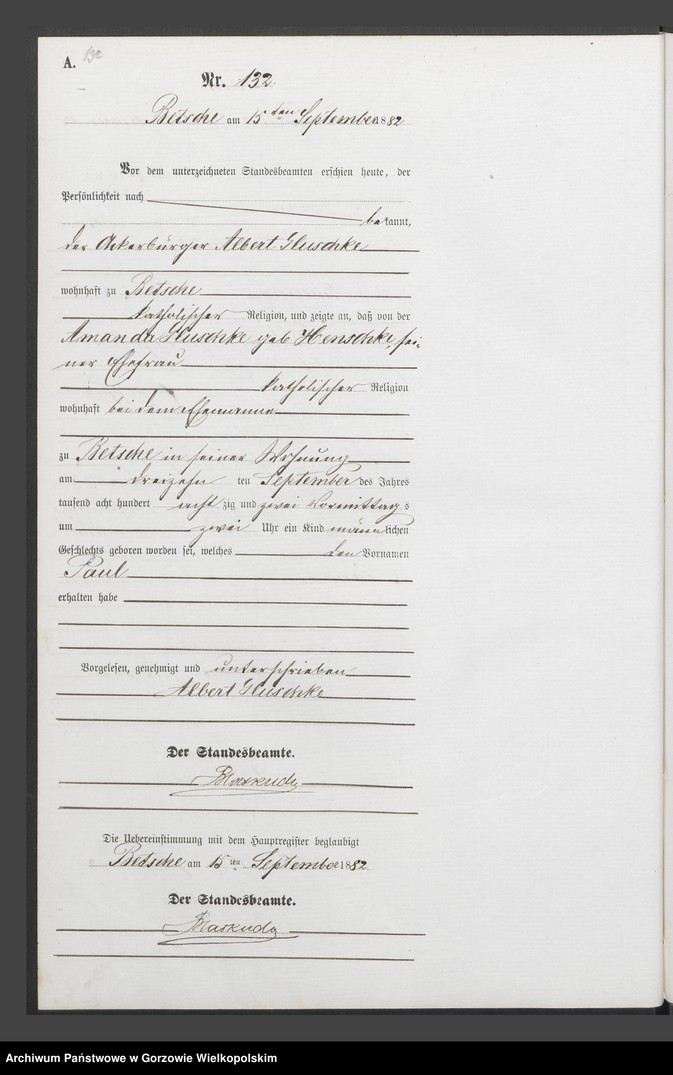 A. 132
Nr. 132.
Betsche am 15ten September 1882
Vor dem unterzeichneten Standesbeamten erschien heute, der
Persönlichkeit nach
bekannt,
der Ackerbürger Albert Gluschke
wohnhaft zu Betsche
katholischer Religion, und zeigte an, daß von der
Amanda Gluschke geb. Henschke, sei-
ner Ehefrau
katholischer Religion
wohnhaft bei dem Ehemanne
zu Betsche in seiner Wohnung
am dreizehn ten September des Jahres
tausend acht hundert acht zig und zwei Vormittags
um zwei Uhr ein Kind männlichen
Geschlechts geboren worden sei, welches den Vornamen
Paul
erhalten habe
Vorgelesen, genehmigt und unterschrieben
Albert Gluschke
Der Standesbeamte.
Die Uebereinstimmung mit dem Hauptregister beglaubigt
Betsche am 15ten September 1882
Der Standesbeamte.
Archiwum Państwowe w Gorzowie Wielkopolskim